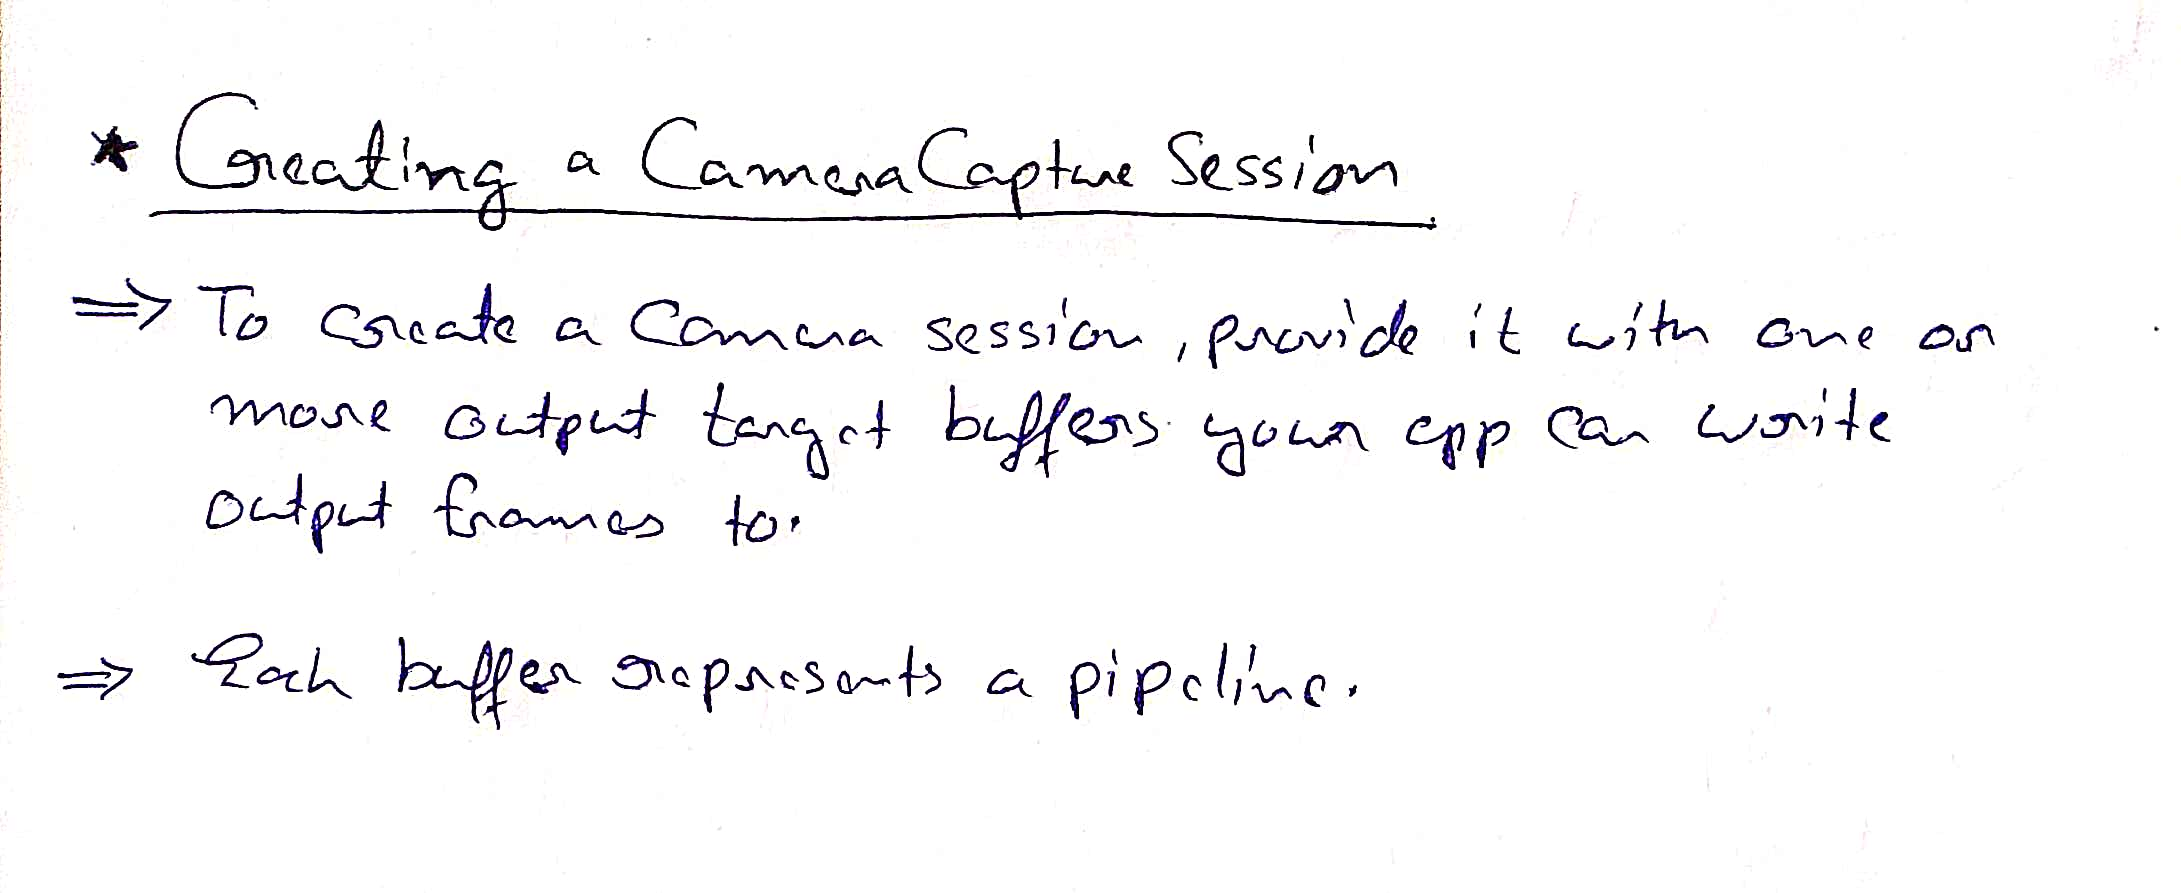 * Creating a CameraCapture Session
⇒ To create a Camera session, provide it with one or
more output target buffers your app can write
output frames to.
⇒ Each buffer represents a pipeline.